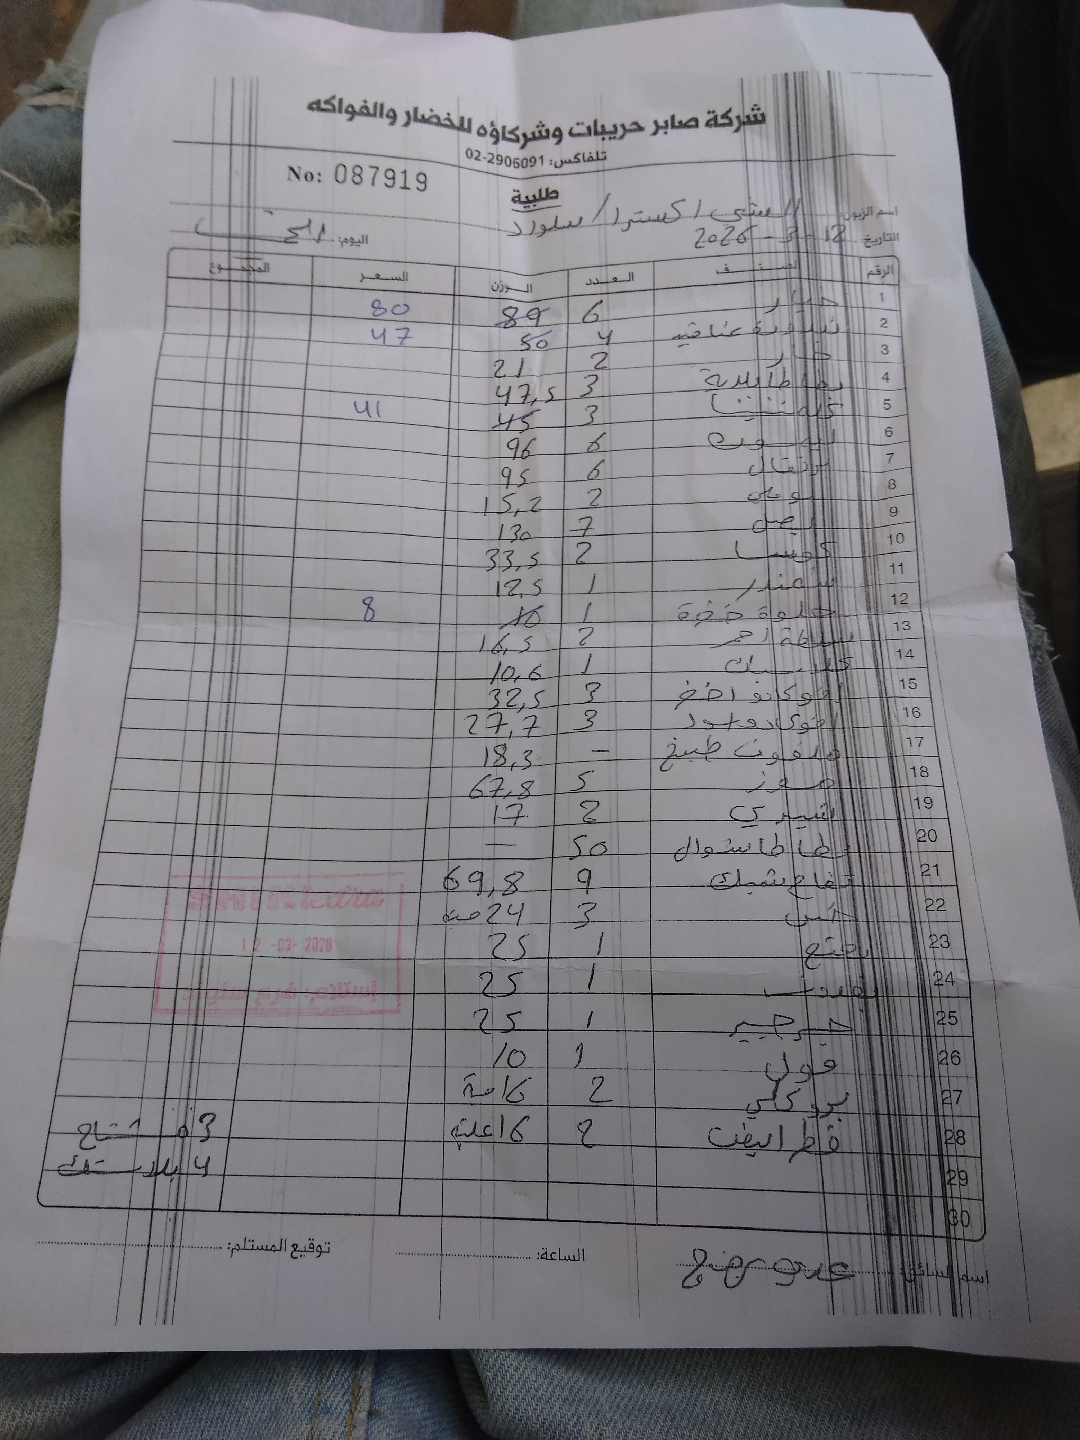 شركة صابر حريبات وشركاؤه للخضار والفواكه
تلفاكس: 02-2906091
No: 087919
طلبية
اسم الزبون: الشني اكسترا / سلواد
التاريخ: 12-3-2026 اليوم: الخميس
الرقم الصنف العدد الوزن السعر المجموع
1 خيار 6 89 80
2 بندورة عناقيد 4 50 47
3 خيار 2 21
4 بطاطا بلدية 3 47,5
5 كلمنتينا 3 45 41
6 ليمون 6 96
7 برتقال 6 95
8 بوملي 2 15,2
9 بصل 7 130
10 كوسا 2 33,5
11 شمندر 1 12,5
12 حلوة خضرة 1 10 8
13 احمر 2 16,5
14 1 10,6
15 افوكادو اخضر 3 32,5
16 افوكادو اسود 3 27,7
17 ملفوف طبيخ – 18,3
18 موز 5 67,8
19 2 17
20 بطاطا شوال 50 —
21 تفاح 9 69,8
22 خس 3 24 حبة
23 نعنع 1 25
24 بقدونس 1 25
25 جرجير 1 25
26 فول 1 10
27 بروكلي 2 16 حبة
28 فطر 2 16 علبة
3 مشتاح
29 4 بلاستك
30
12 -03- 2026
إستلام: فرع سلواد
اسم السائق: الساعة: توقيع المستلم: